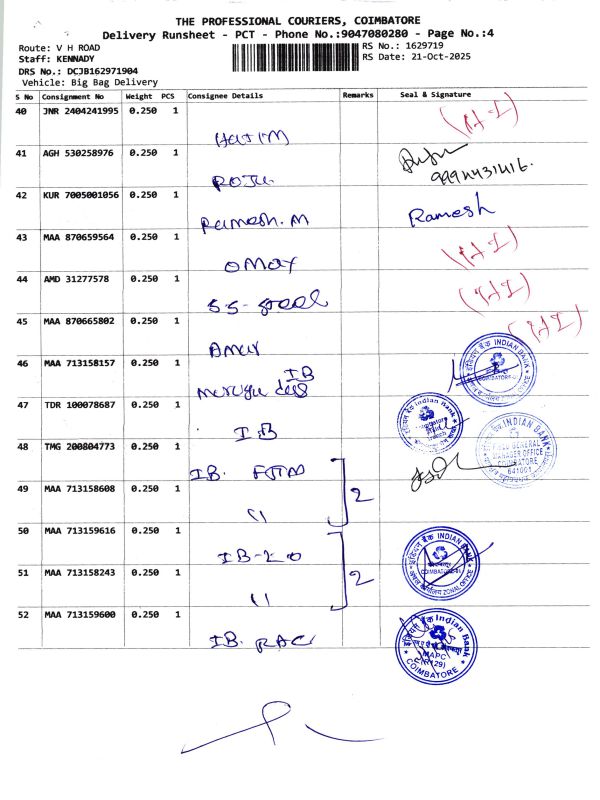 THE PROFESSIONAL COURIERS, COIMBATORE
Delivery Runsheet - PCT - Phone No.:9047080280 - Page No.:4
Route: V H ROAD
RS No.: 1629719
Staff: KENNADY
RS Date: 21-Oct-2025
DRS No.: DCJB162971904
Vehicle: Big Bag Delivery
S No Consignment No Weight PCS Consignee Details Remarks Seal & Signature
40 JNR 2404241995 0.250 1
HATIM
41 AGH 530258976 0.250 1
ROJU
42 KUR 7005001056 0.250 1
Ramesh.M Ramesh
43 MAA 870659564 0.250 1
OMAX
44 AMD 31277578 0.250 1
S.S- Steel
45 MAA 870665802 0.250 1
Amar
46 MAA 713158157 0.250 1
IB
47 TDR 100078687 0.250 1
I.B
48 TMG 200804773 0.250 1
IB.
49 MAA 713158608 0.250 1
11 2
50 MAA 713159616 0.250 1
IB-ZO
51 MAA 713158243 0.250 1
11 2
52 MAA 713159600 0.250 1
IB. RAC
इंडियन बैंक INDIAN BANK
COIMBATORE
Indian Bank
INDIAN BANK
FIELD GENERAL
MANAGER OFFICE
COIMBATORE
641001
INDIAN BANK
ZONAL OFFICE
इंडियन बैंक Indian Bank
MAPC
COIMBATORE